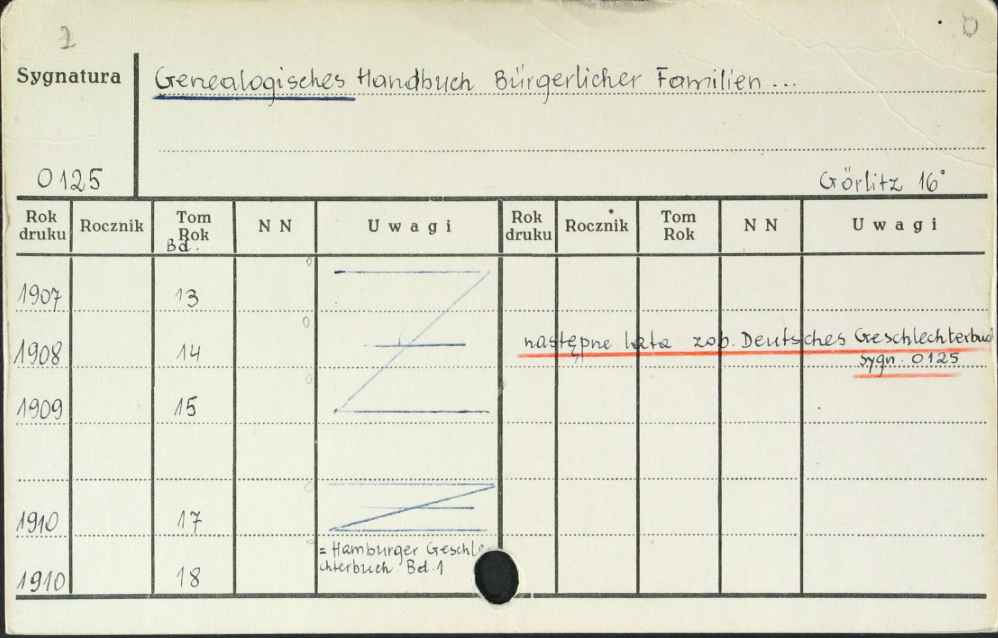 2
Sygnatura
Genealogisches Handbuch Bürgerlicher Familien...
0125
Görlitz 16°
Rok druku Rocznik Tom Rok Bd. N N Uwagi Rok druku Rocznik Tom Rok N N Uwagi
1907 13
1908 14 następne lata zob. Deutsches Geschlechterbuch
sygn. 0125
1909 15
1910 17
= Hamburger Geschle-
chterbuch Bd 1
1910 18